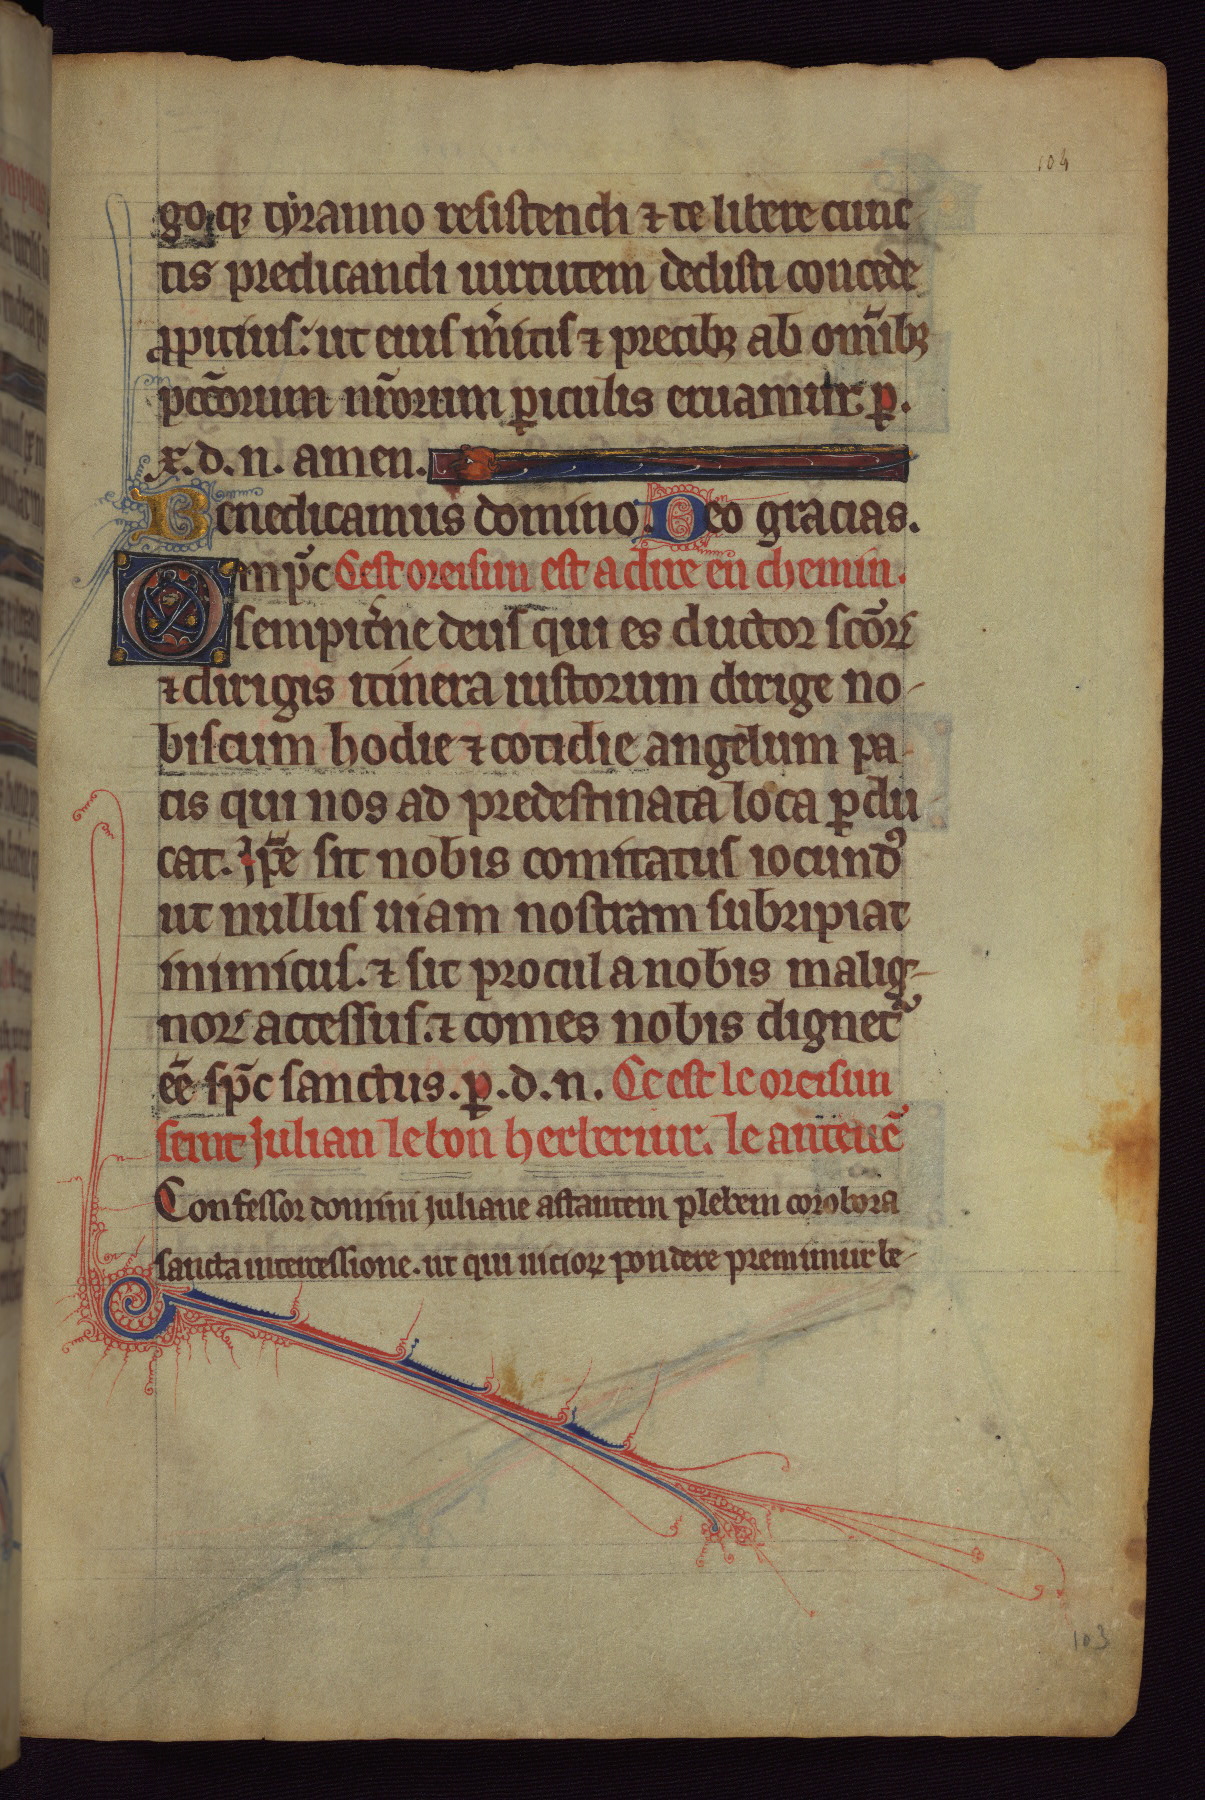 104
goꝗ tyranno resistendi ⁊ te libere cunc
tis predicandi uirtutem dedisti concede
ꝓpitius: ut eius m̾itis ⁊ precibꝫ ab omībꝫ
pccōrum nr̄orum ꝑiculis eruamur. ꝑ.
x. d. n. amen.
Benedicamus domino. Deo gracias.
Omp̄c Cest oreisun est a dire en chemin.
sempit̾ne deus qui es ductor scōꝝ
⁊ dirigis itinera iustorum dirige no-
biscum hodie ⁊ cotidie angelum pa-
cis qui nos ad predestinata loca ꝑdu
cat. Ip̄e sit nobis comitatus iocundꝰ
ut nullus uiam nostram subripiat
inimicus. ⁊ sit procul a nobis malig-
noꝝ accessus. ⁊ comes nobis dignet᷑
eē sp̄c sanctus. ꝑ. d. n. Ce est le oreisun
seint Julian le bon herberiur. le anteuē
Confessor domini Juliane astantem plebem corobora
sancta intercessione. ut qui uicioꝝ pondere premimur be-
103